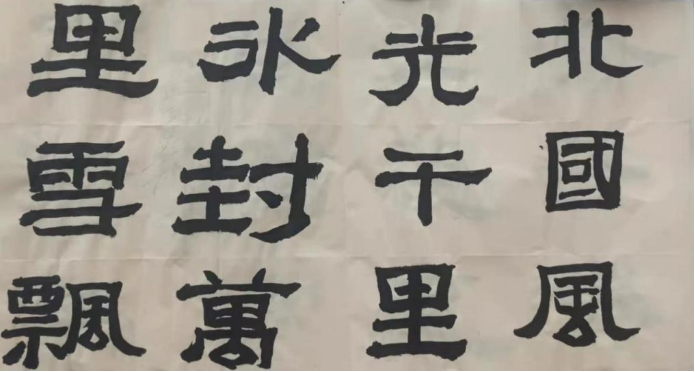 北國風
光千里
氷封萬
里雪飄